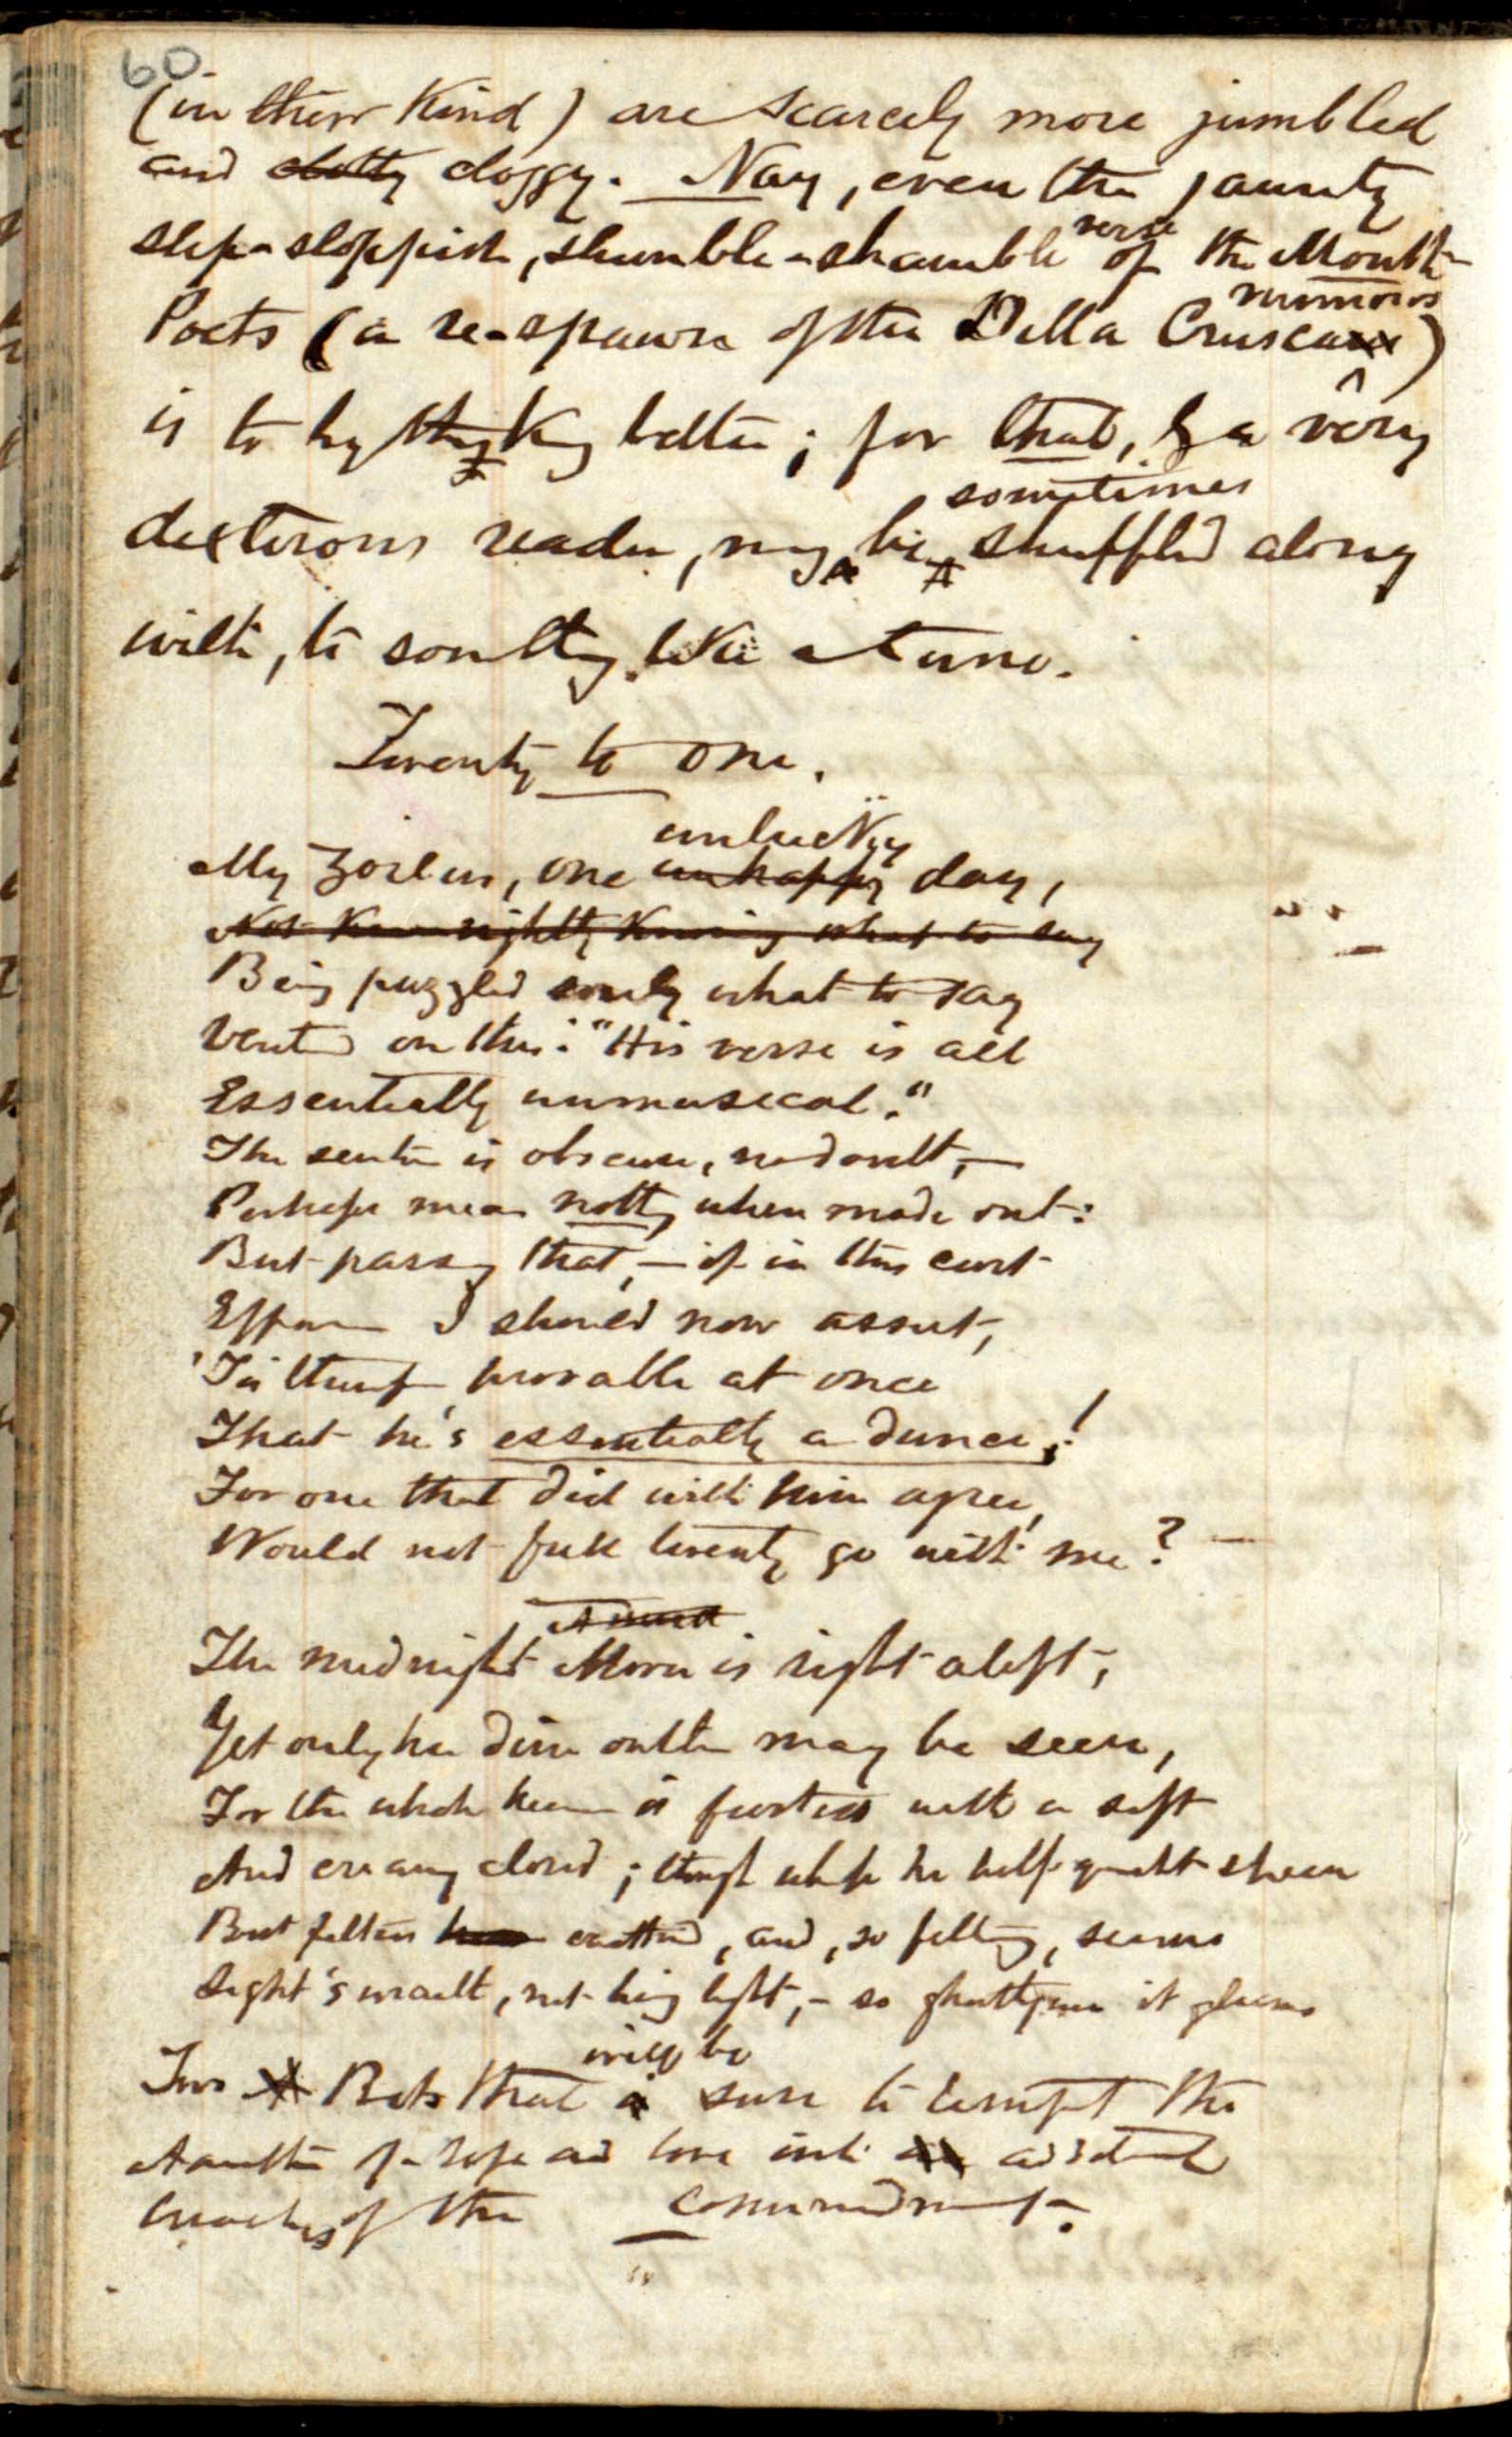 60
(in their kind) are scarcely more jumbled
and clotty cloggy. Nay, even the jaunty
slip-sloppish, shumble-shamble verse of the Month-
Poets (a re-spawn of the Della Crusca rumorors)
is to my thinking better; for that, by a very
dexterous reader, may be sometimes shuffled along
with, to somthing like a tune.
Twenty to one.
My Zoilus, one unhappy unlucky day,
Not rightly knowing what to say
Being puzzled sorely what to say
Vented on this: "His verse is all
Essentially unmusical."
The sentence is obscure, no doubt,—
Perhaps means nothing when made out:
But passing that,— if in this curt
I should now assert,
'Tis provable at once
That he's essentially a dunce!
For one that did with him agree,
Would not full twenty go with me?
The midnight Moon is right aloft,
Yet only her dim outline may be seen,
For the whole heaven is with a soft
And creamy cloud; though which her half-quencht sheen
But falters, and, so falling, seems
Light's wraith, not being light,— so it gleams
Two Bits that will be sure to tempt the
of hope and love into
of the conundrum